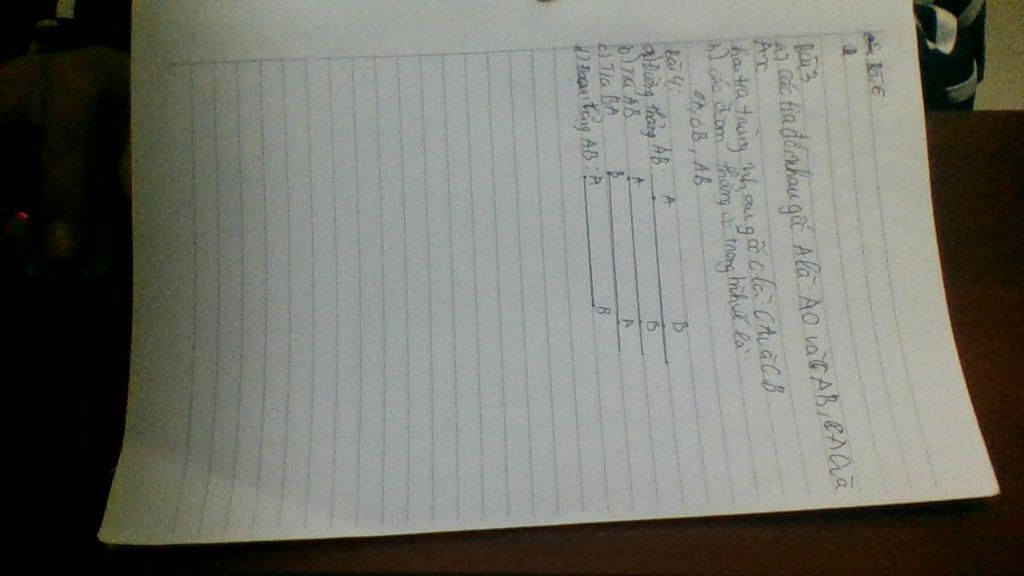 Bài 3
a) Các tia đối nhau gốc A là AO và AB, AO và
Ax
hai tia trùng nhau gốc O là OA và OB
b) Các đoạn thẳng có trong hình vẽ là:
OA, OB, AB
Bài 4:
a) Đường thẳng AB: A B
b) Tia AB A B
c) Tia BA B A
d) Đoạn thẳng AB: A B